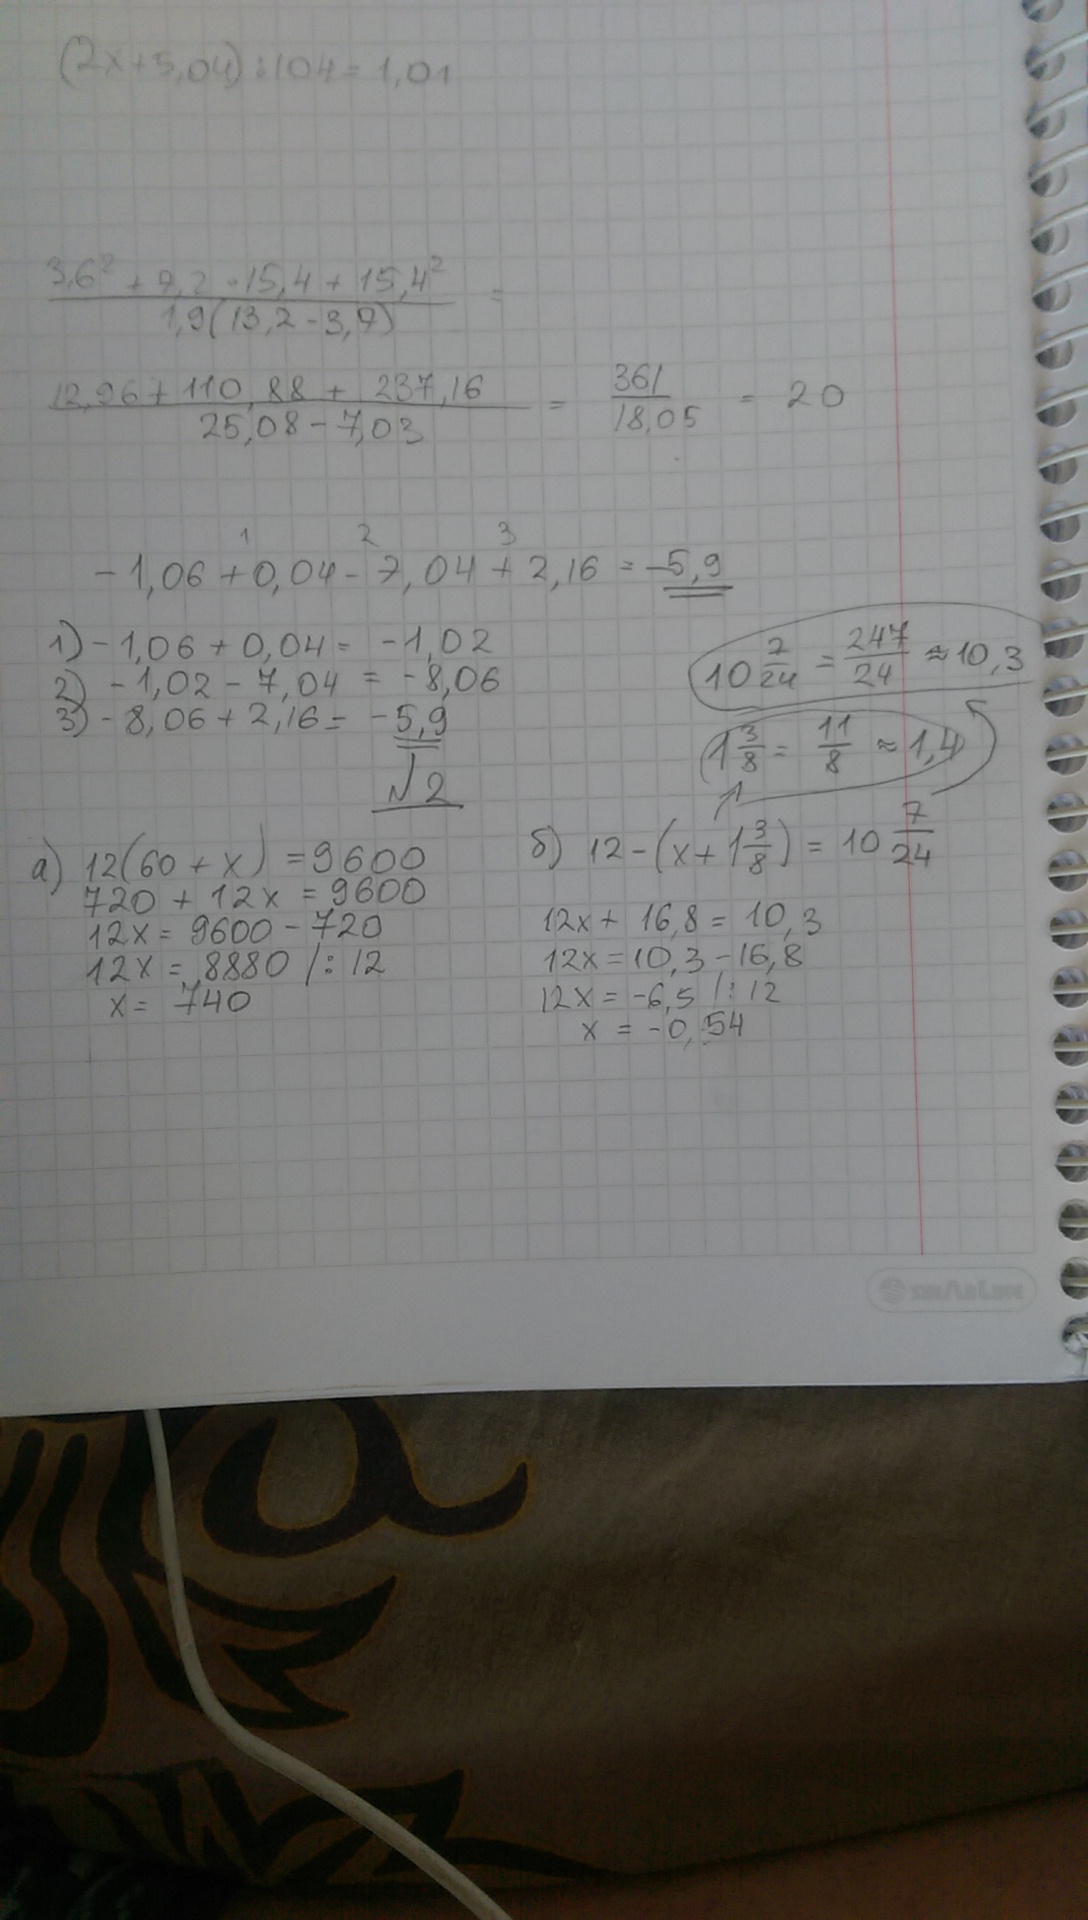 (2x+5,04):104=1,01
3,6² + 7,2 · 15,4 + 15,4² =
1,9(13,2-3,7)
12,96+110,88+ 237,16 = 361 = 20
25,08-7,03 18,05
1 2 3
-1,06+0,04-7,04+2,16 = -5,9
1) -1,06+0,04 = -1,02
2) -1,02-7,04 = -8,06
3) -8,06+2,16 = -5,9
10 7/24 = 247/24 ≈ 10,3
1 3/8 = 11/8 ≈ 1,4
√2
а) 12(60+x) =9600
720 + 12x = 9600
12x= 9600-720
12x = 8880 /: 12
x= 740
б) 12-(x+1 3/8) = 10 7/24
12x+ 16,8 = 10,3
12x=10,3-16,8
12x= -6,5 /: 12
x = -0,54